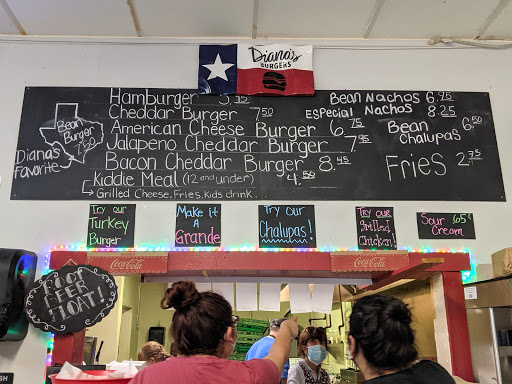 Diana's
BURGERS
Hamburger 5.95
Cheddar Burger 7.50
American Cheese Burger 6.75
Jalapeño Cheddar Burger 7.95
Bacon Cheddar Burger 8.45
Kiddie Meal (12 and under) 4.50
Grilled Cheese, Fries, Kids drink.
Bean Burger 7.50
Dianas Favorite
Bean Nachos 6.95
Especial Nachos 8.25
Bean Chalupas 6.50
Fries 2.75
Try our
Turkey
Burger
Make it
A
Grande
Try Our
Chalupas!
Try our
Grilled
Chicken!
Sour 65¢
Cream
Coca-Cola
Coca-Cola
ROOT
BEER
FLOAT!